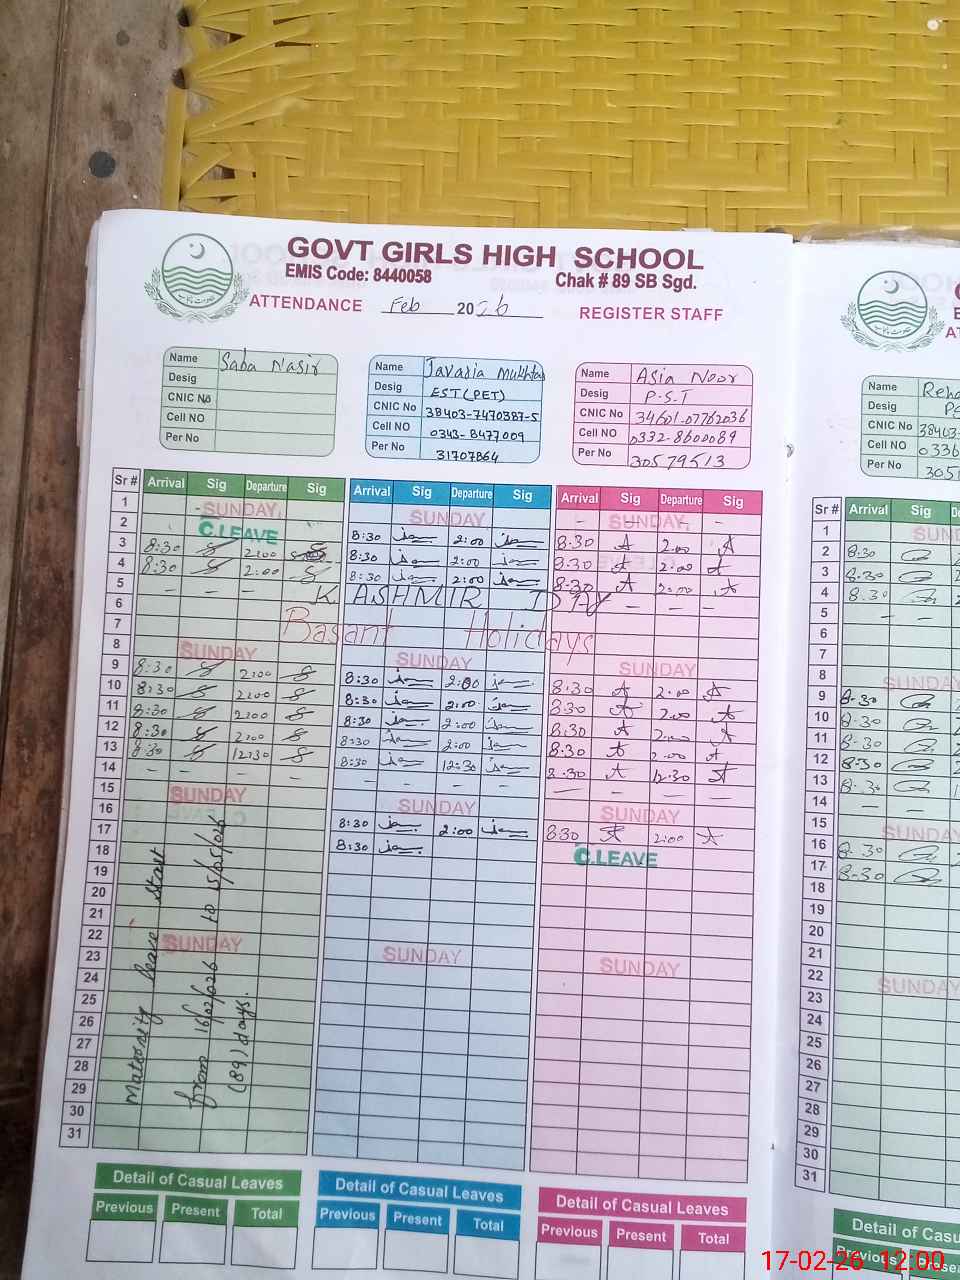 GOVT GIRLS HIGH SCHOOL
EMIS Code: 8440058 Chak # 89 SB Sgd.
ATTENDANCE Feb 2026 REGISTER STAFF
Name Saba Nasir
Desig
CNIC No
Cell NO
Per No
Name Javaria Mukhtar
Desig EST (PET)
CNIC No 38403-7470387-5
Cell NO 0343-8477009
Per No 31707864
Name Asia Noor
Desig P.S.T
CNIC No 34601-07762036
Cell NO 0332-8600089
Per No 30579513
Sr # Arrival Sig Departure Sig Arrival Sig Departure Sig Arrival Sig Departure Sig
1 SUNDAY SUNDAY SUNDAY
2 C.LEAVE 8:30 2:00 8:30 2:00
3 8:30 2:00 8:30 2:00 8:30 2:00
4 8:30 2:00 8:30 2:00 8:30 2:00
5 - - - KASHMIR DAY - - -
6 Basant Holidays
7
8 SUNDAY SUNDAY SUNDAY
9 8:30 2:00 8:30 2:00 8:30 2:00
10 8:30 2:00 8:30 2:00 8:30 2:00
11 8:30 2:00 8:30 2:00 8:30 2:00
12 8:30 2:00 8:30 2:00 8:30 2:00
13 8:30 12:30 8:30 12:30 8:30 12:30
14 - - - - - - - - - - - -
15 SUNDAY SUNDAY SUNDAY
16 8:30 2:00 8:30 2:00
17 8:30 C.LEAVE
18
19
20
21
22 SUNDAY SUNDAY SUNDAY
23
24
25
26
27
28
29
30
31
Maternity leave start
from 16/02/026 to 15/05/026
(89) days.
Detail of Casual Leaves
Previous Present Total
Detail of Casual Leaves
Previous Present Total
Detail of Casual Leaves
Previous Present Total
Name
Desig
CNIC No 38403-
Cell NO 0336
Per No 305
Sr # Arrival Sig
1
2 8:30
3 8:30
4 8:30
5 - -
6
7
8 SUNDAY
9 8:30
10 8:30
11 8:30
12 8:30
13 8:30
14 - -
15 SUNDAY
16 8:30
17 8:30
18
19
20
21
22 SUNDAY
23
24
25
26
27
28
29
30
31
Detail of
Previous
17-02-26 12:00